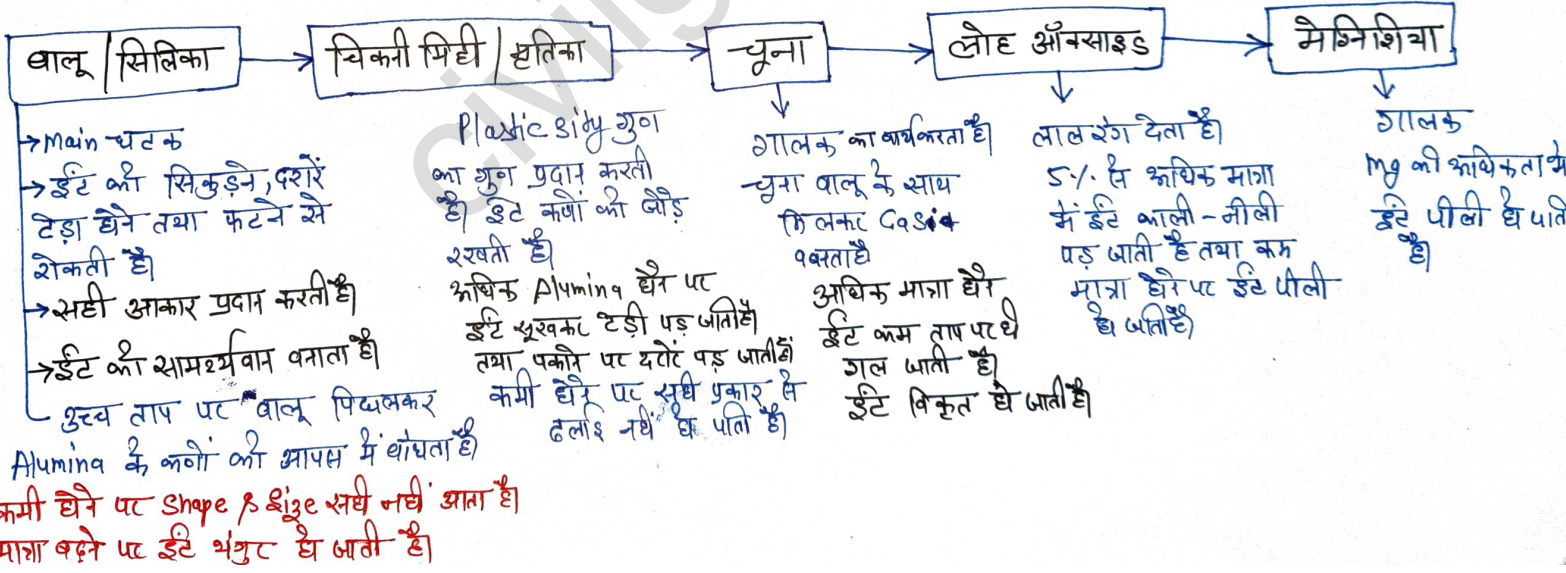 बालू / सिलिका
चिकनी मिट्टी / मृतिका
चूना
लोह ऑक्साइड
मेग्निशिया
→ main घटक
→ ईंट को सिकुड़ने, दरारें
टेड़ा होने तथा फटने से
रोकती है।
→ सही आकार प्रदान करती है।
→ ईंट को सामर्थ्यवान बनाता है।
उच्च ताप पर बालू पिघलकर
Alumina के कणों को आपस में बांधता है।
कमी होने पर Shape & Size सही नहीं आता है।
मात्रा बढ़ने पर ईंट भंगुर हो जाती है।
Plasticsity गुण
का गुण प्रदान करती
है। ईंट कणों को जोड़े
रखती है।
अधिक Alumina होने पर
ईंट सूखकर टेडी पड़ जाती है।
तथा पकाने पर दरारें पड़ जाती है।
कमी होने पर सही प्रकार से
ढलाई नहीं हो पाती है।
गालक का कार्य करता है।
चूना बालू के साथ
मिलकर
बनाता है
अधिक मात्रा होने
ईंट कम ताप पर ही
गल जाती है।
ईंट विकृत हो जाती है।
लाल रंग देता है।
5% से अधिक मात्रा
में ईंट काली-नीली
पड़ जाती है तथा कम
मात्रा होने पर ईंट पीली
हो जाती है।
गालक
mg की अधिकता से
ईंट पीली हो पाती
है।
civil